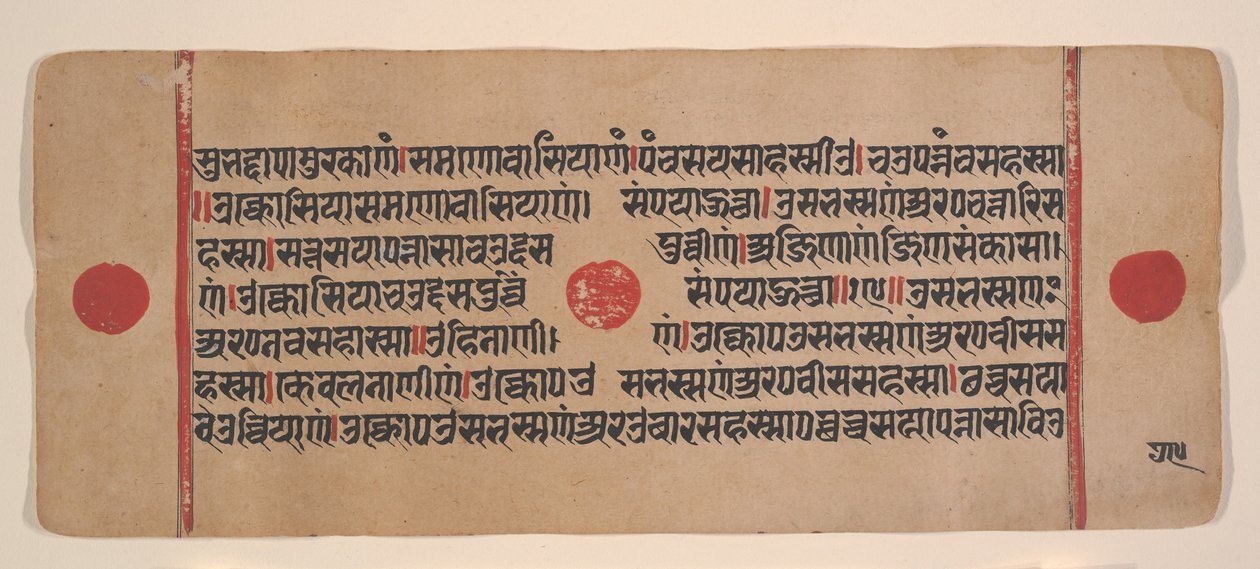 सुभद्दापामुरकाणं।समणोवासियाणं।पंचसयसाहस्सीउ।चउपन्नंचसहस्सा
॥उक्कोसियासमणोवासियाणं। संपयाहुत्था।उसभस्सणंअरहचत्तारिस
हस्सा।सत्तसयापन्नासाचउद्दस पुव्वीणं।अजिणाणंजिणसंकासा।
णं।उक्कोसियाचउद्दसपुव्विं संपयाहुत्था॥ ॥उसभस्सणः
अरहनवसहास्सा॥उहिनाणी। णं।उक्कोपउसभस्सणंअरहवीसस
हस्सा।केवलनाणीणं।उक्कोपउ सभस्सणंअरहवीससहस्सा।छच्चसया
वेउव्वियाणं।उक्कोपउसभस्सणंअरहउबारसहस्सापछच्चसयापन्नासाविउ